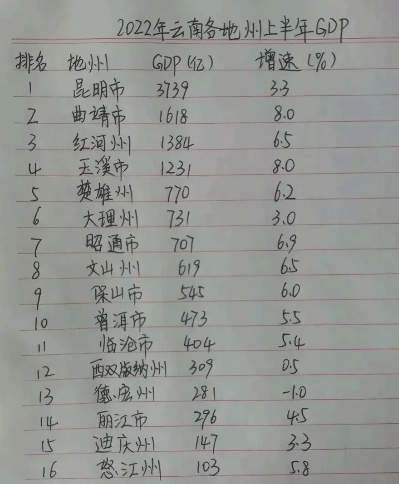 2022年云南各地州上半年GDP
排名 地州 GDP(亿) 增速(%)
1 昆明市 3739 3.3
2 曲靖市 1618 8.0
3 红河州 1384 6.5
4 玉溪市 1231 8.0
5 楚雄州 770 6.2
6 大理州 731 3.0
7 昭通市 707 6.9
8 文山州 619 6.5
9 保山市 545 6.0
10 普洱市 473 5.5
11 临沧市 404 5.4
12 西双版纳州 309 0.5
13 德宏州 281 -1.0
14 丽江市 296 4.5
15 迪庆州 147 3.3
16 怒江州 103 5.8